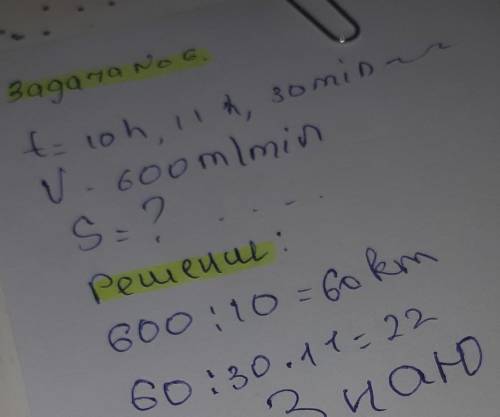 Задача No 6.
t = 10h, 11 h, 30min
V - 600m/min
S = ? . . - . .
Решение:
600 : 10 = 60 km
60 : 30 . 11 = 22
Знаю